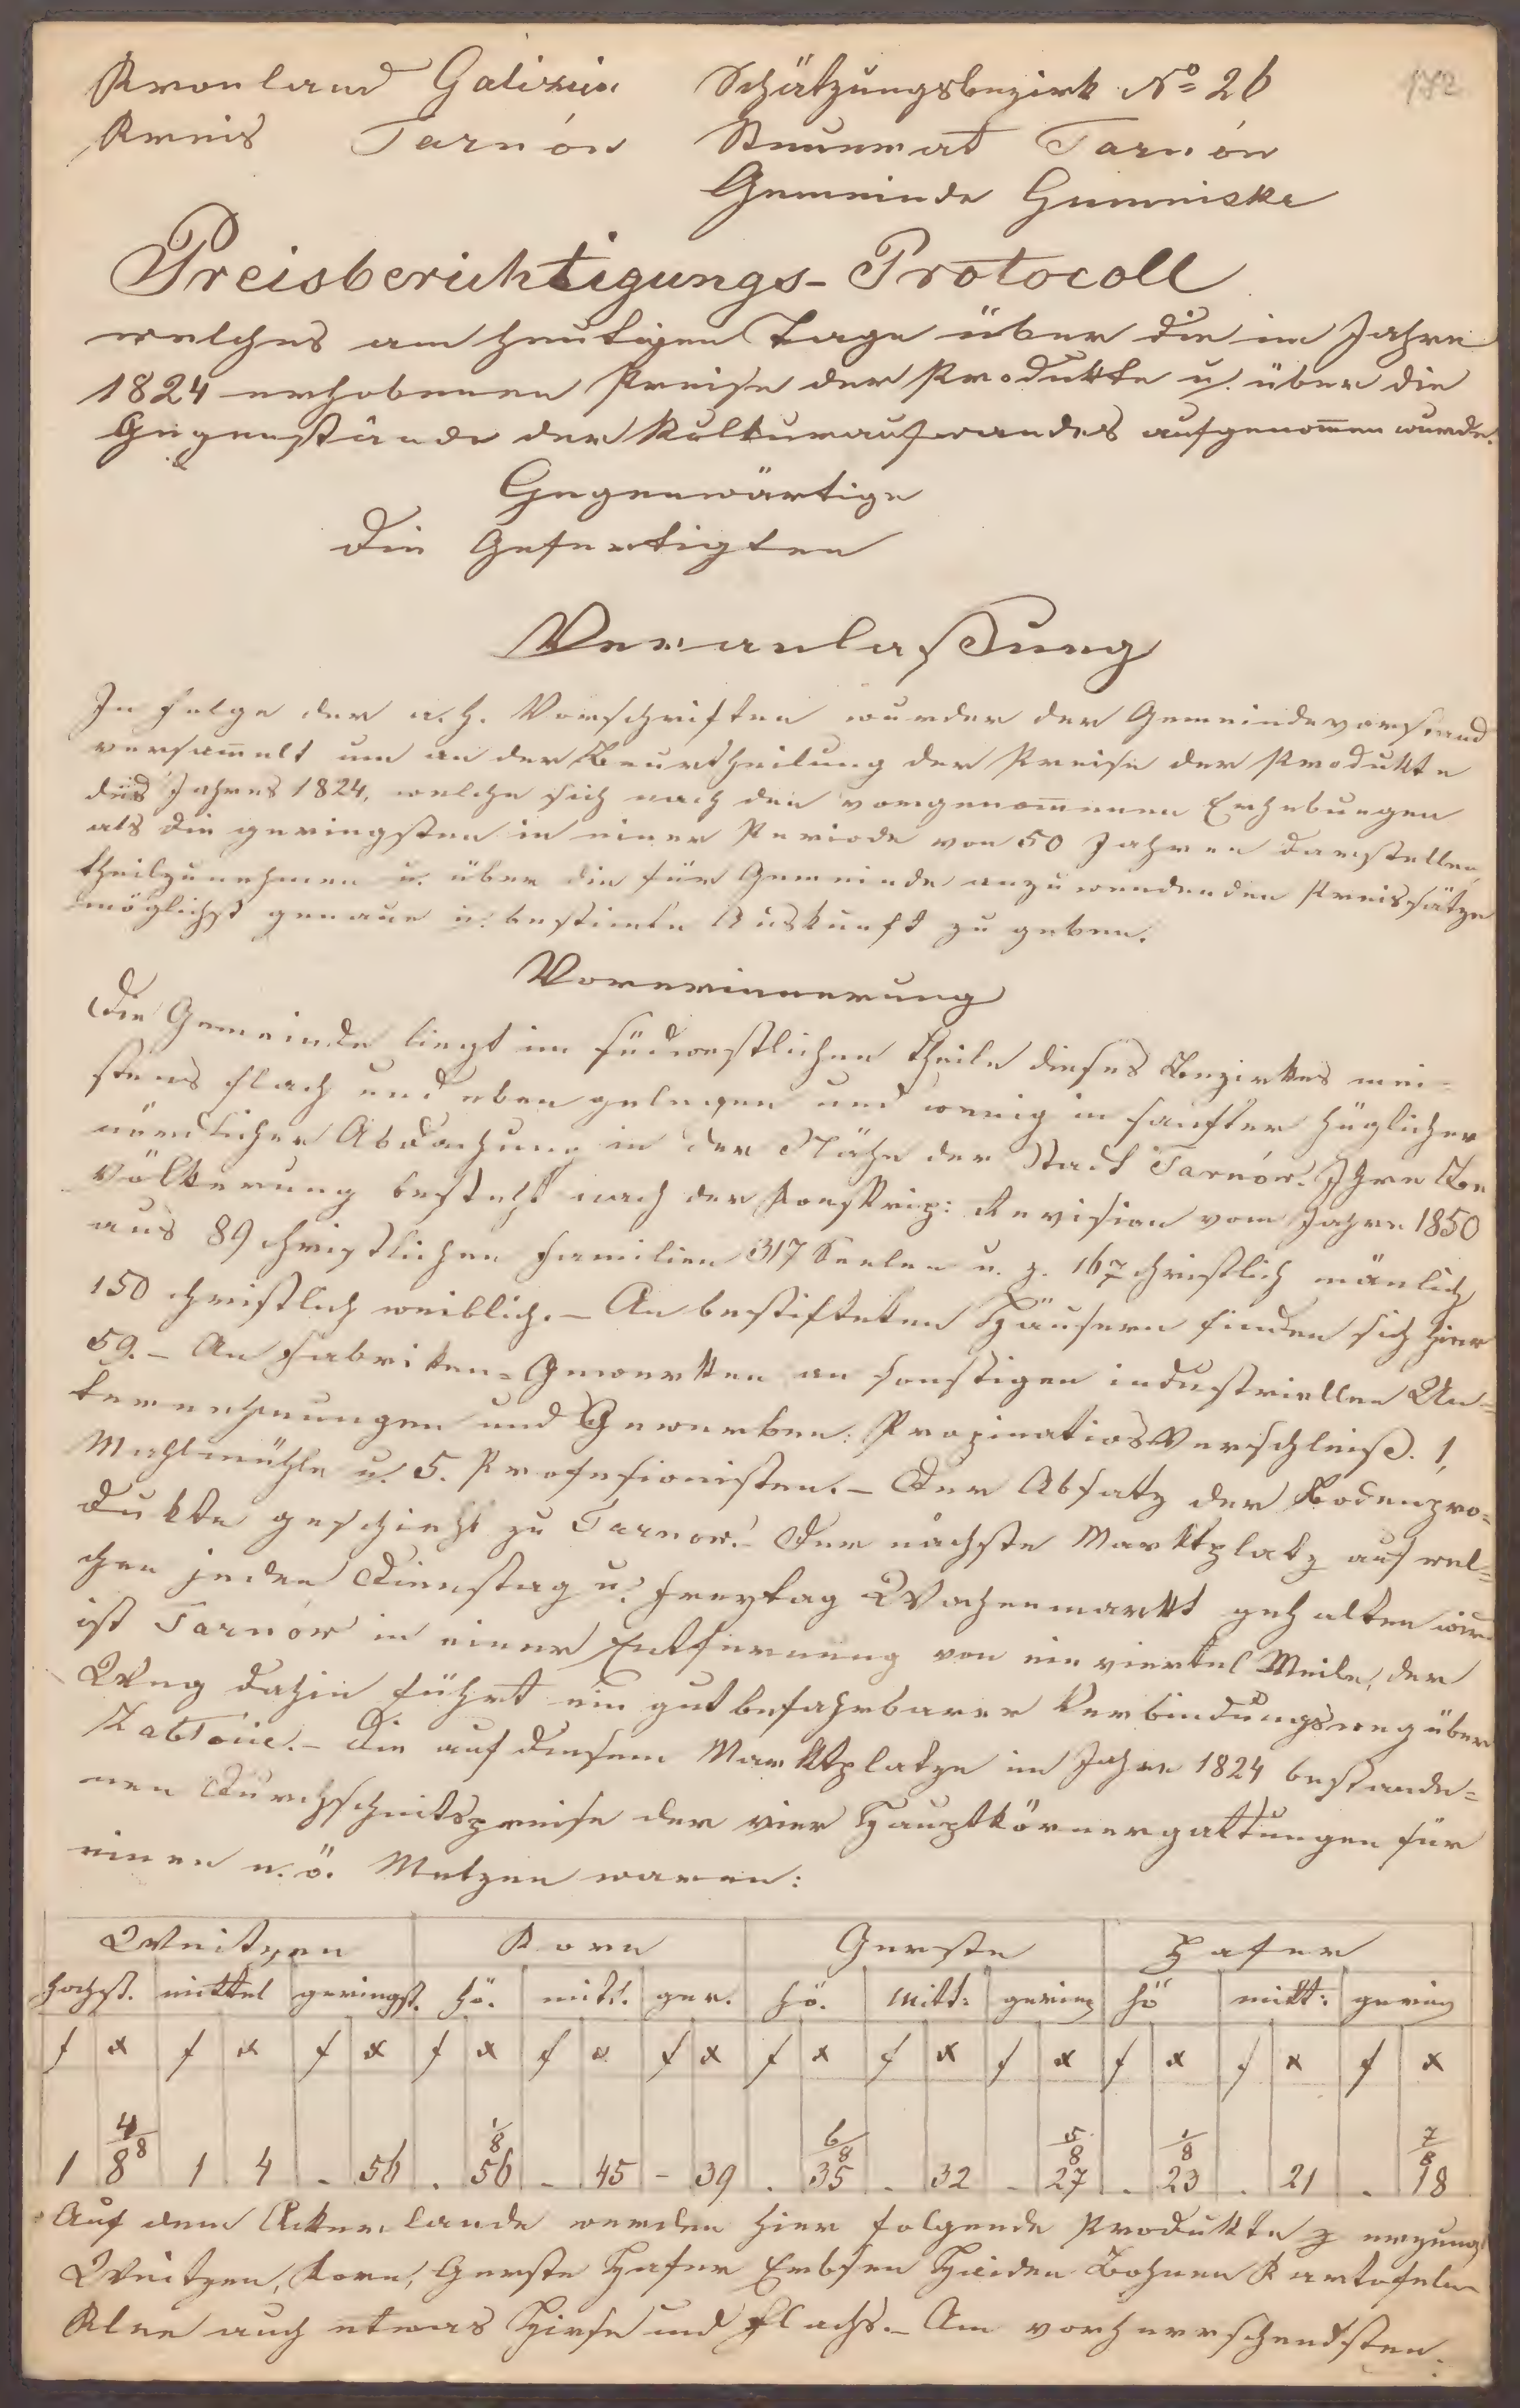 Kronland Galizien Schätzungsbezirk No 26
Kreis Tarnów Steueramt Tarnów
Gemeinde Gumniska
Preisberichtigungs-Protocoll
welches am heutigen Tage über die im Jahre
1824 erhobenen Preise der Produkte u. über die
Gegenstände des Kulturaufwandes aufgenommen wurde.
Gegenwärtige
Die Gefertigten
Veranlaßung
In Folge der a. h. Vorschriften wurder der Gemeindevorstand
versammelt um an der Beurtheilung der Preise der Produkte
des Jahres 1824, welche sich nach den vorgenommenen Erhebungen
als die geringsten in einer Periode von 50 Jahren darstellen,
theilzunehmen u. über die für Gemeinde anzuwendenden Preissätze
möglichst genaue u. bestimte Auskunft zu geben.
Vorerinnerung
Die Gemeinde liegt im südwestlichen Theile dieses Bezirkes mei-
stens flach und eben gelegen und wenig in sanfter hüglicher
nördlicher Abdachung in der Nähe der Stadt Tarnów. Ihre Be
völkerung besteht nach der Konskrip: Revision vom Jahre 1850
aus 89 christlichen Familien 317 Seelen u. z. 167 christlich mänlich
150 christlich weiblich. - An bestifteten Häusern finden sich hier
59. - An Fabriken-Gewerken an sonstigen industriellen Un-
ternehmungen und Gewerben: PropinatiosVerschleiß. 1,
Mahlmühle u. 5. Profesionisten. - Der Absatz der Bodenpro-
dukte geschieht zu Tarnow. - Der nächste Marktplatz auf wel-
chen jeden Dienstag u. Freytag Wochenmarkt gehalten wird
ist Tarnów in einer Entfernung von ein viertel Meile, der
Weg dahin führt ein gut befahrbarer Verbindungsweg über
Zabłocie. - Die auf diesem Marktplatze im Jahre 1824 bestande-
nen Durchschnitspreise der vier Hauptkörnergattungen für
einen n. ö. Metzen waren:
Weitzen Korn Gerste Hafer
höchst. mittel geringst. hö. mitt. ger. hö. mitt: gering hö mitt: gering
f x f x f x f x f x f x f x f x f x f x f x f x
4/8 1/8 6/8 5/8 1/8 7/8
1 8 1 4 - 56 . 56 - 45 - 39 . 35 . 32 - 27 . 23 . 21 . 18
Auf dem Ackerlande werden hier folgende Produkte erzeugt
Weitzen, Korn, Gerste Hafer Erbsen Heiden Bohnen Kartofeln
Klee auch etwas Hirse und Flachs. - Am vorherrschendsten